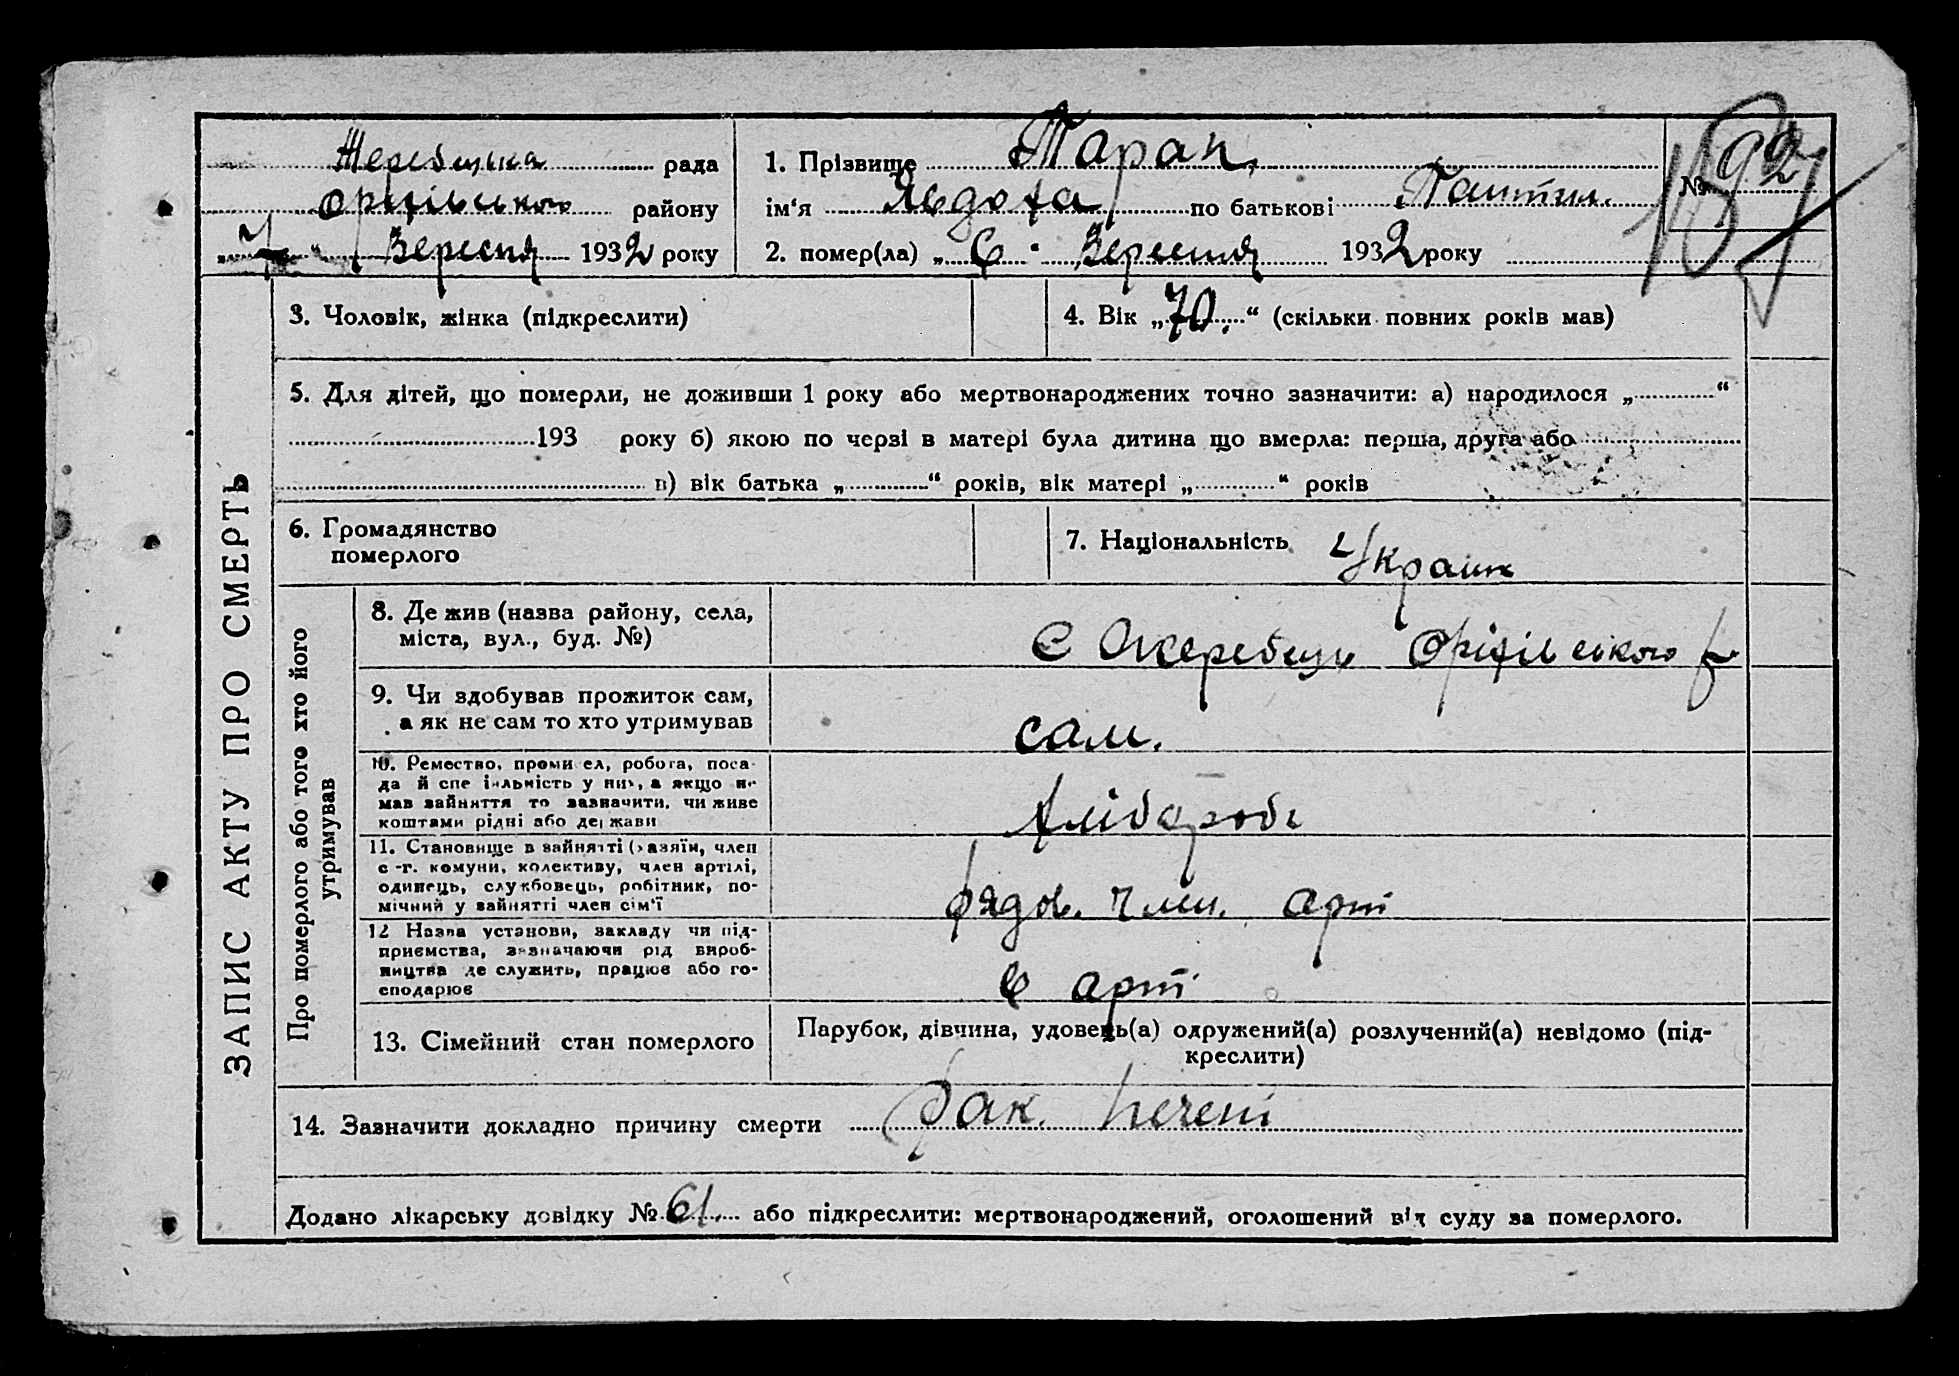 Жеребецька рада
Оріхівського району
„ 7 “ Вересня 1932 року
1. Прізвище Таран
ім‘я Явдоха по батькові
2. помер(ла) „ 6 “ Вересня 1932 року
№ 92
187
ЗАПИС АКТУ ПРО СМЕРТЬ
3. Чоловік, жінка (підкреслити)
4. Вік „ 70. “ (скільки повних років мав)
5. Для дітей, що померли, не доживши 1 року або мертвонароджених точно зазначити: а) народилося „ “
193 року б) якою по черзі в матері була дитина що вмерла: перша, друга або
в) вік батька „ “ років, вік матері „ “ років
6. Громадянство
померлого
7. Національність Україн
Про померлого або того хто його
утримував
8. Де жив (назва району, села,
міста, вул., буд. №)
С Жеребець Оріхівського р
9. Чи здобував прожиток сам,
а як не сам то хто утримував
сам.
10. Ремество, промисел, робота, поса-
да й спеціяльність у них, а якщо не
мав зайняття то зазначити, чи живе
коштами рідні або держави
хлібороб
11. Становище в зайнятті (хазяїн, член
с.-г. комуни, колективу, член артілі,
одинець, службовець, робітник, по-
мічний у зайнятті член сім‘ї
рядов. член. арт
12 Назва установи, закладу чи під-
приємства, зазначаючи рід вироб-
ництва де служить, працює або го-
сподарює
в арт
13. Сімейний стан померлого
Парубок, дівчина, удовець(а) одружений(а) розлучений(а) невідомо (під-
креслити)
14. Зазначити докладно причину смерти рак печені
Додано лікарську довідку № 61. або підкреслити: мертвонароджений, оголошений від суду за померлого.